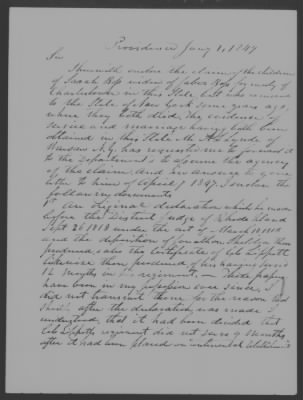 Providence Jany 1, 1847
Sir
I herewith enclose the claim of the children
of Sarah widow of late of
Charlestown in this State but who removed
to the State of New York some years ago,
where they both died. The evidence of
service and marriage having both been
obtained in this State.
Warsaw N.Y. has requested me to forward it
to the Department & to assume the agency
of the claim. And in answer to your
letter to him of 1847. I enclose the
following documents
1st An original declaration which he made
before the District Judge of Rhode Island
Sept 26 1818 under the act of March 18 1818
and the deposition of Jonathan then
produced, also the certificate of
likewise then produced of his having served
12 months in his regiment, — These papers
have been in my possession ever since. I
did not transmit them for the reason that
after the declaration was made I
understood that it had been decided that
Col. regiment did not serve 9 months
after it had been placed on "continental establishment"